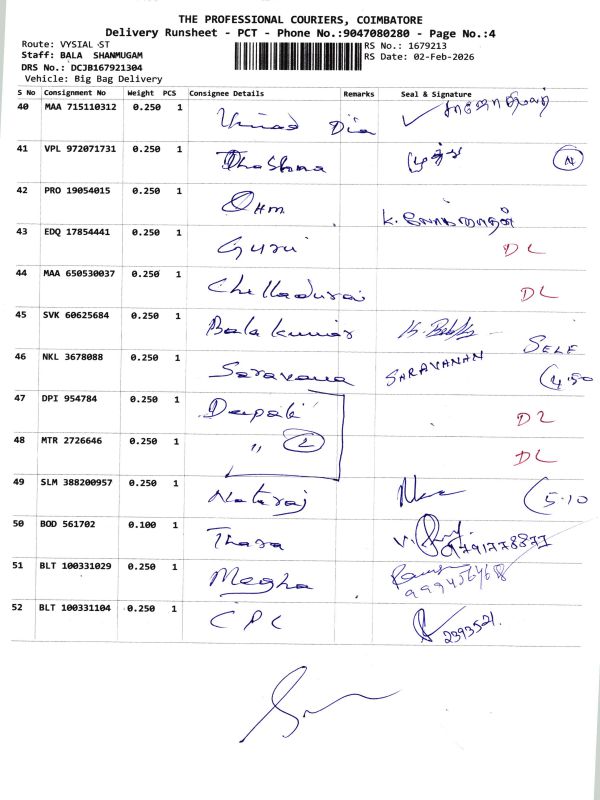 THE PROFESSIONAL COURIERS, COIMBATORE
Delivery Runsheet - PCT - Phone No.:9047080280 - Page No.:4
Route: VYSIAL ST RS No.: 1679213
Staff: BALA SHANMUGAM RS Date: 02-Feb-2026
DRS No.: DCJB167921304
Vehicle: Big Bag Delivery
S No Consignment No Weight PCS Consignee Details Remarks Seal & Signature
40 MAA 715110312 0.250 1 Dia
41 VPL 972071731 0.250 1 முத்து N
42 PRO 19054015 0.250 1 Ohm K.
43 EDQ 17854441 0.250 1 Guru DL
44 MAA 650530037 0.250 1 Chelladurai DL
45 SVK 60625684 0.250 1 Bala kumar SELF
46 NKL 3678088 0.250 1 Saravana SARAVANAN (4.50
47 DPI 954784 0.250 1 Deepak DL
48 MTR 2726646 0.250 1 " 2 DL
49 SLM 388200957 0.250 1 Nataraj (5.10
50 BOD 561702 0.100 1 Thara V. 9791778871
51 BLT 100331029 0.250 1 Megha 9994564668
52 BLT 100331104 0.250 1 CPC 2393521.